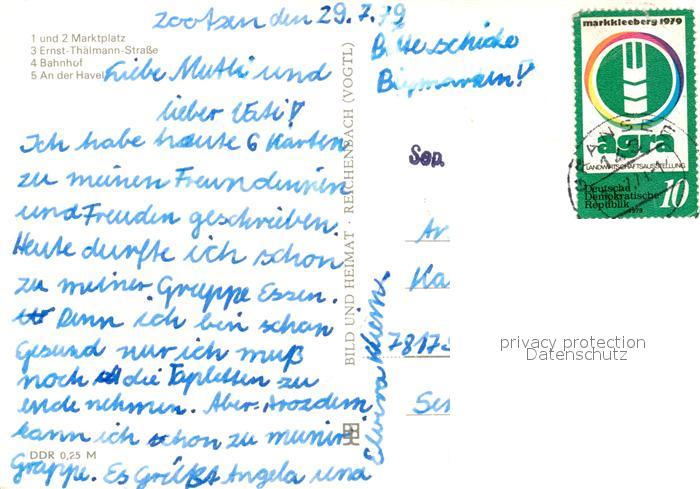 zootzen den 29.7.79
1 und 2 Marktplatz
3 Ernst-Thälmann-Straße
4 Bahnhof
5 An der Havel
Liebe Mutti und
lieber Vati!
Ich habe heute 6 Karten
zu meinen Freundinnen
und Freuden geschrieben.
Heute durfte ich schon
zu meiner Gruppe Essen.
Denn ich bin schon
Gesund nur ich muß
noch die Tapletten zu
ende nehmen. Aber trozdem
kann ich schon zu meiner
Gruppe. Es Grüßt Angela und
DDR 0,25 M
BILD UND HEIMAT · REICHENBACH (VOGTL)
Bitte schicke
Biefmarken!
markkleeberg 1979
agra
LANDWIRTSCHAFTSAUSSTELLUNG
Deutsche
Demokratische
Republik
10
1979
GRANSEE
Ka
7817
privacy protection
Datenschutz